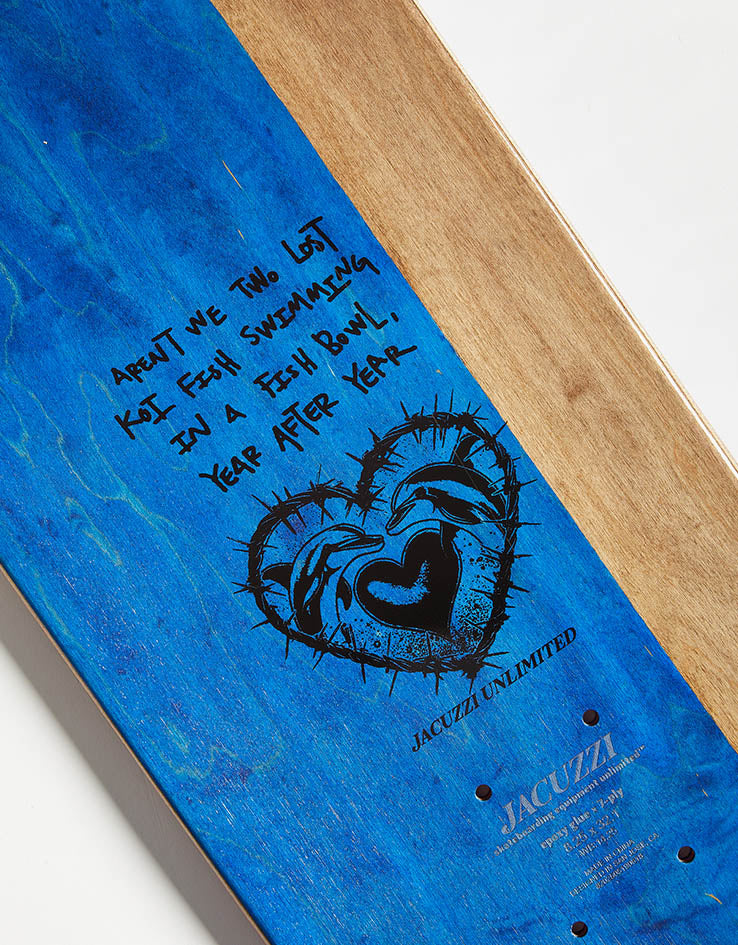 AREN'T WE TWO LOST
KOI FISH SWIMMING
IN A FISH BOWL,
YEAR AFTER YEAR
JACUZZI UNLIMITED
JACUZZI
skateboarding equipment unlimited™
epoxy glue • 7-ply
8.25 x 32.1